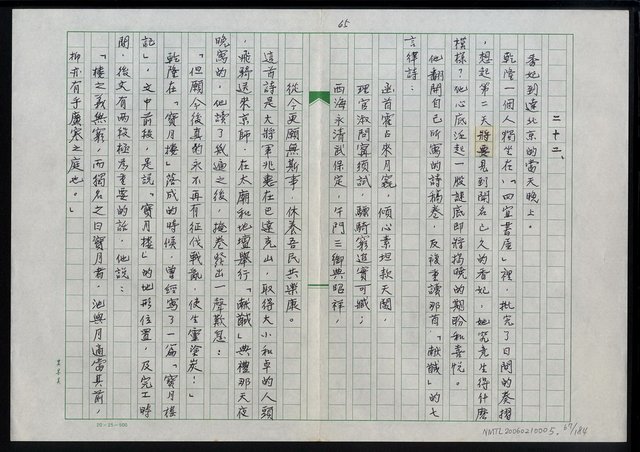 65
二十二、
香妃到達北京的當天晚上。
乾隆一個人獨坐在「四宜書屋」裡，批完了日間的奏摺
，想起第二天將要見到聞名已久的香妃，她究竟生得什麼
模樣？他心底泛起一股謎底即將揭曉的期盼和喜悅。
他翻開自己所寫的詩稿卷，反複重讀那首「獻馘」的七
言律詩：
函首霍占來月窟，傾心素坦款天閶，
理官淑問寧須試，驃騎窮追實可臧；
西海永清武保定，午門三御典昭祥，
從今更願無斯事，休養吾民共樂康。
這首詩是大將軍兆惠在巴達克山，取得大小和卓的人頭
，飛騎送來京師，在太廟和地壇舉行「獻馘」典禮那天夜
晚寫的，他讀了幾遍之後，掩卷發出一聲歎息：
「但願今後真的永不再有征伐戰亂，使生靈塗炭！」
乾隆在「寶月樓」落成的時候，曾經寫了一篇「寶月樓
記」，文中前段，是說「寶月樓」的地形位置，及完工時
間，後文有兩段極為重要的話，他說：
「樓之義無窮，而獨名之曰寶月者，池與月適當其前，
抑亦有乎廣寒之庭也。」
20×25=500
NMTL20060210005
67/184